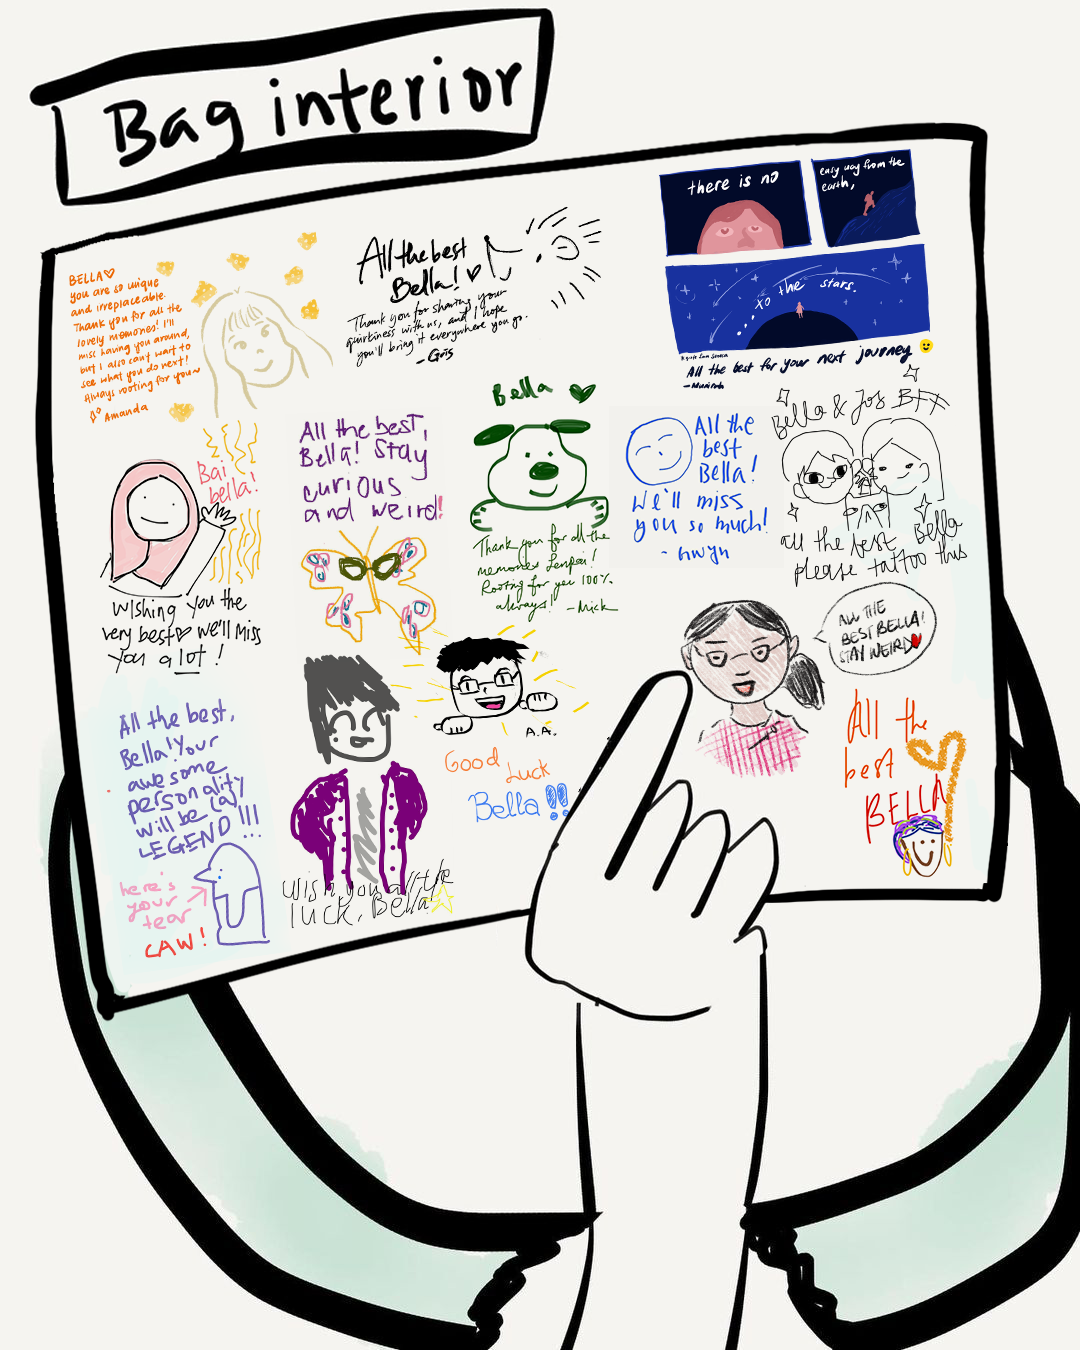 Bag interior
BELLA♡
you are so unique
and irreplaceable.
Thank you for all the
lovely memories! I'll
miss having you around,
but I also can't wait to
see what you do next!
Always rooting for you~
Amanda
All the best
Bella! ♡
Thank you for sharing your
quirkiness with us, and I hope
you'll bring it everywhere you go.
there is no
easy way from the
earth,
to the stars.
All the best for your next journey
Bai
bella!
Wishing you the
very best♡ we'll miss
you a lot!
All the best,
Bella! Stay
curious
and weird!
Bella ♥
Thank you for all the
memories Senpai!
Rooting for you 100%
always! - Mick
All the
best
Bella!
We'll miss
you so much!
- Gwyn
Bella & Jos BFF
all the best Bella
please tattoo this
ALL THE
BEST BELLA!
STAY WEIRD♥
A.A.
Good Luck
Bella!!
All the best,
Bella! Your
awesome
personality
will be (a)
LEGEND!!!...
here's
your
tear
CAW!
Wish you all the
luck, Bella
All the
best
BELLA